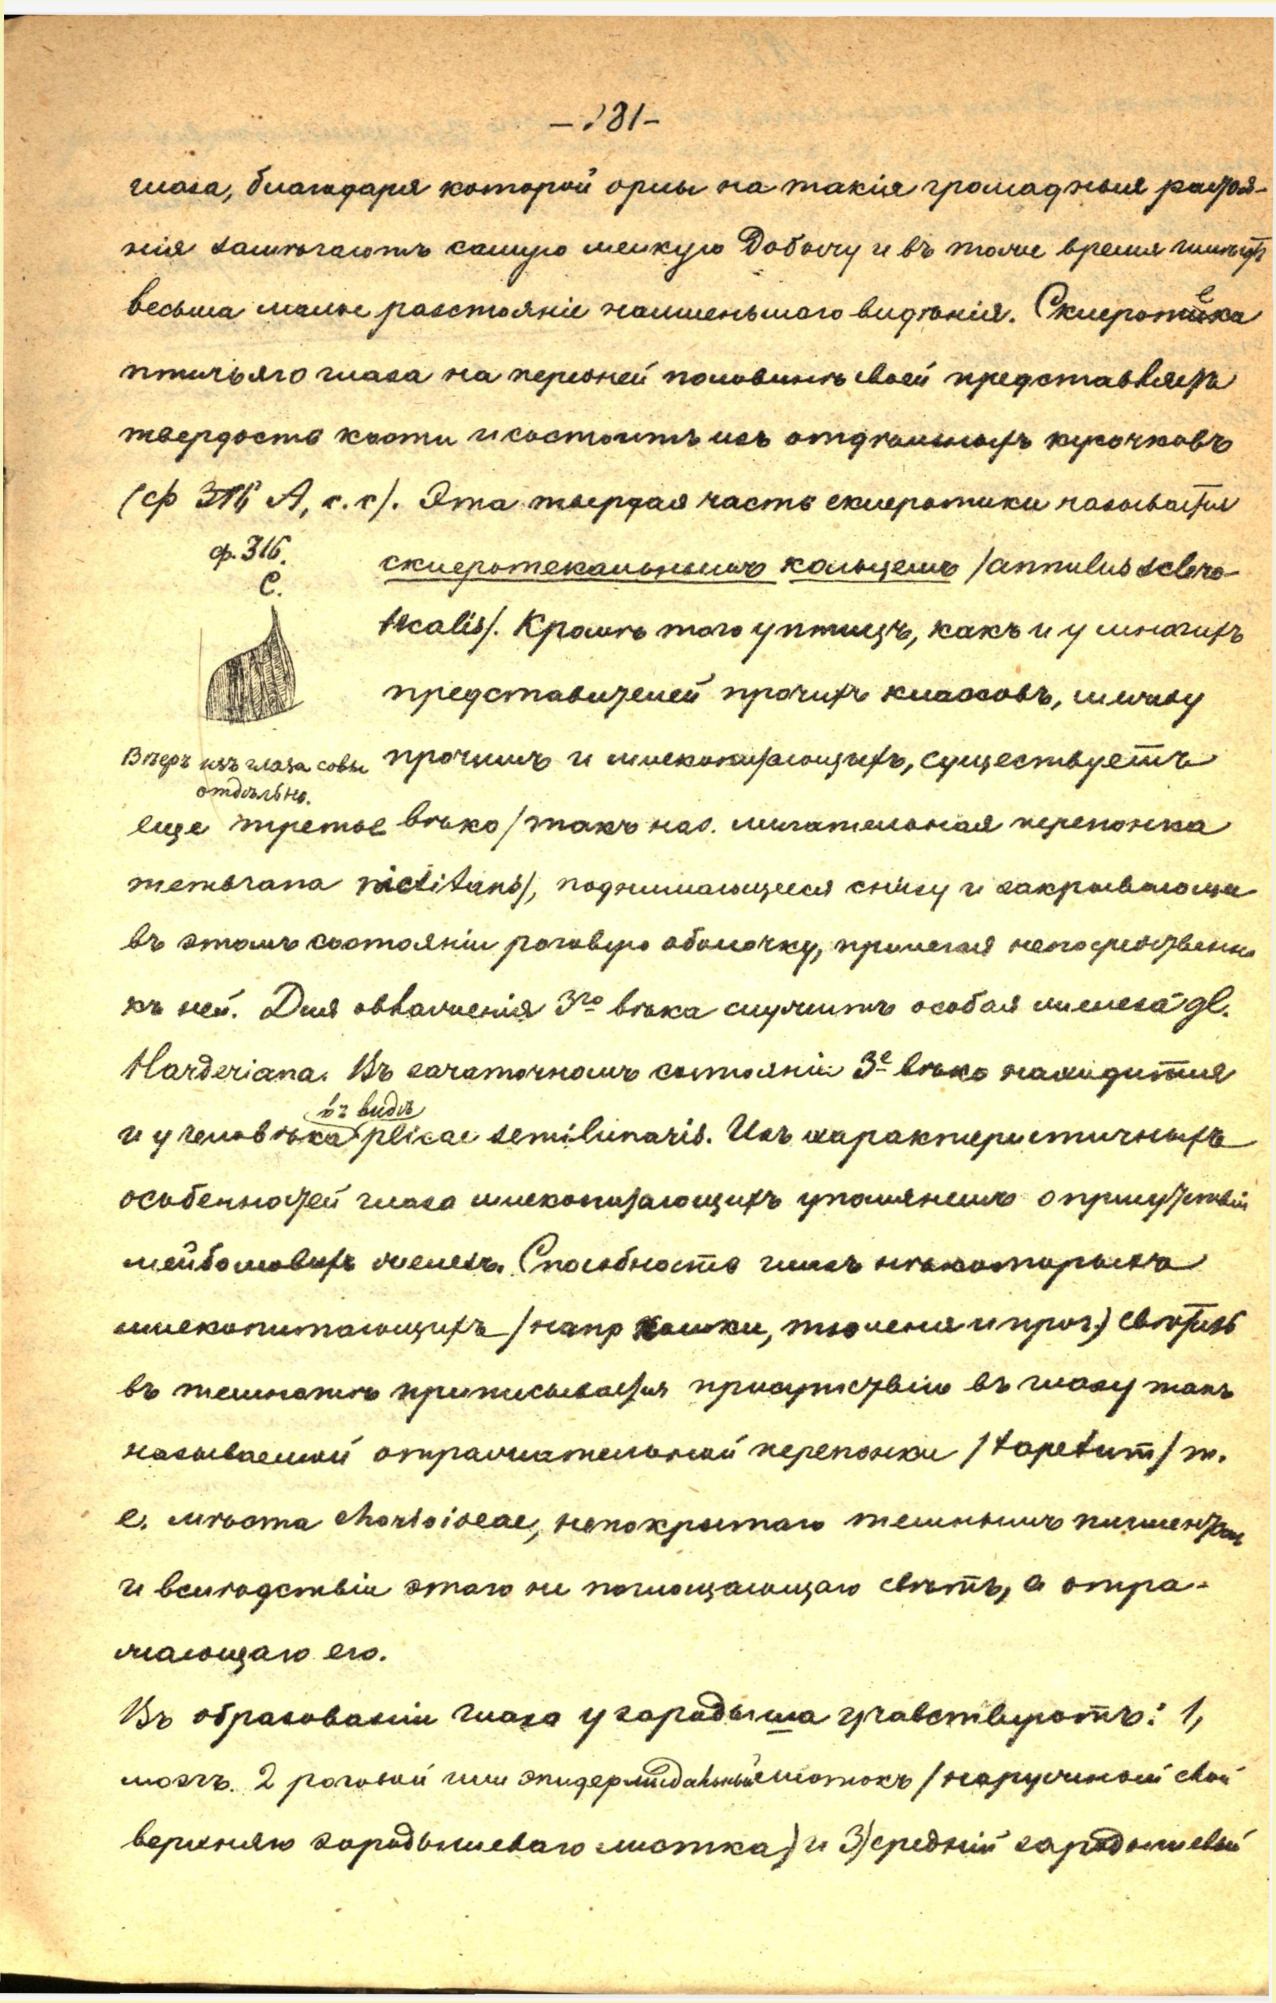 — 281 —
глаза, благодаря которой орлы на такія громадныя растоя-
нія замѣчаютъ самую мелкую добычу и въ тоже время имѣютъ
весьма малое разстояніе наименьшаго видѣнія. Склеротика
птичьяго глаза на передней половинѣ своей представляетъ
твердость кости и состоитъ изъ отдѣльныхъ кусочковъ
(ф 316 А, с. с). Эта твердая часть склеротики называется
ф. 316.
С.
склеротекальнымъ кольцемъ (annulus sclero-
tecalis). Кромѣ того у птицъ, какъ и у многихъ
представителей прочихъ классовъ, между
Вѣеръ изъ глаза совы
отдѣльно.
прочимъ и млекопитающихъ, существуетъ
еще третье вѣко (такъ наз. мигательная перепонка
membrana nictitans), поднимающееся снизу и закрывающее
въ этомъ состояніи роговую оболочку, прилегая непосредственно
къ ней. Для овлажненія 3го вѣка служитъ особая железа gl.
Harderiana. Въ зачаточномъ состояніи 3е вѣко находится
въ видѣ
и у человѣка plicae semilunaris. Изъ характеристичныхъ
особенностей глаза млекопитающихъ упомянемъ о присутствіи
мейбомовыхъ железъ. Способность глазъ нѣкоторыхъ
млекопитающихъ (напр кошки, тюленя и проч.) свѣтить
въ темнотѣ приписывается присутствію въ глазу такъ
называемой отражательной перепонки (tapetum) т.
е. мѣста chorioideae, непокрытаго темнымъ пигментомъ
и вслѣдствіи этого не поглощающаго свѣтъ, а отра-
жающаго его.
Въ образованіи глаза у зародыша учавствуютъ: 1,
мозгъ. 2 роговой или эпидермидальный листокъ (наружный слой
верхняго зародышеваго листка) и 3) средній зародышевый